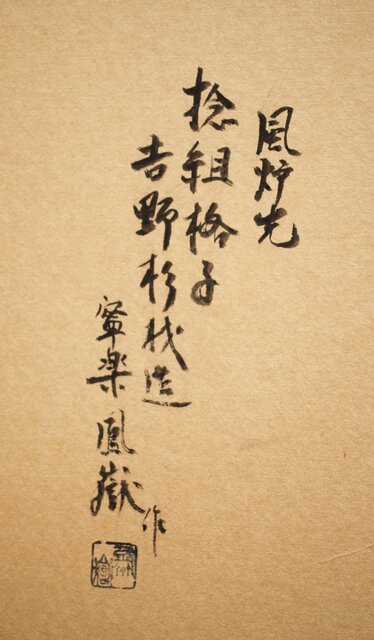 風炉先
捻組格子
吉野杉材造
寧楽鳳嶽作